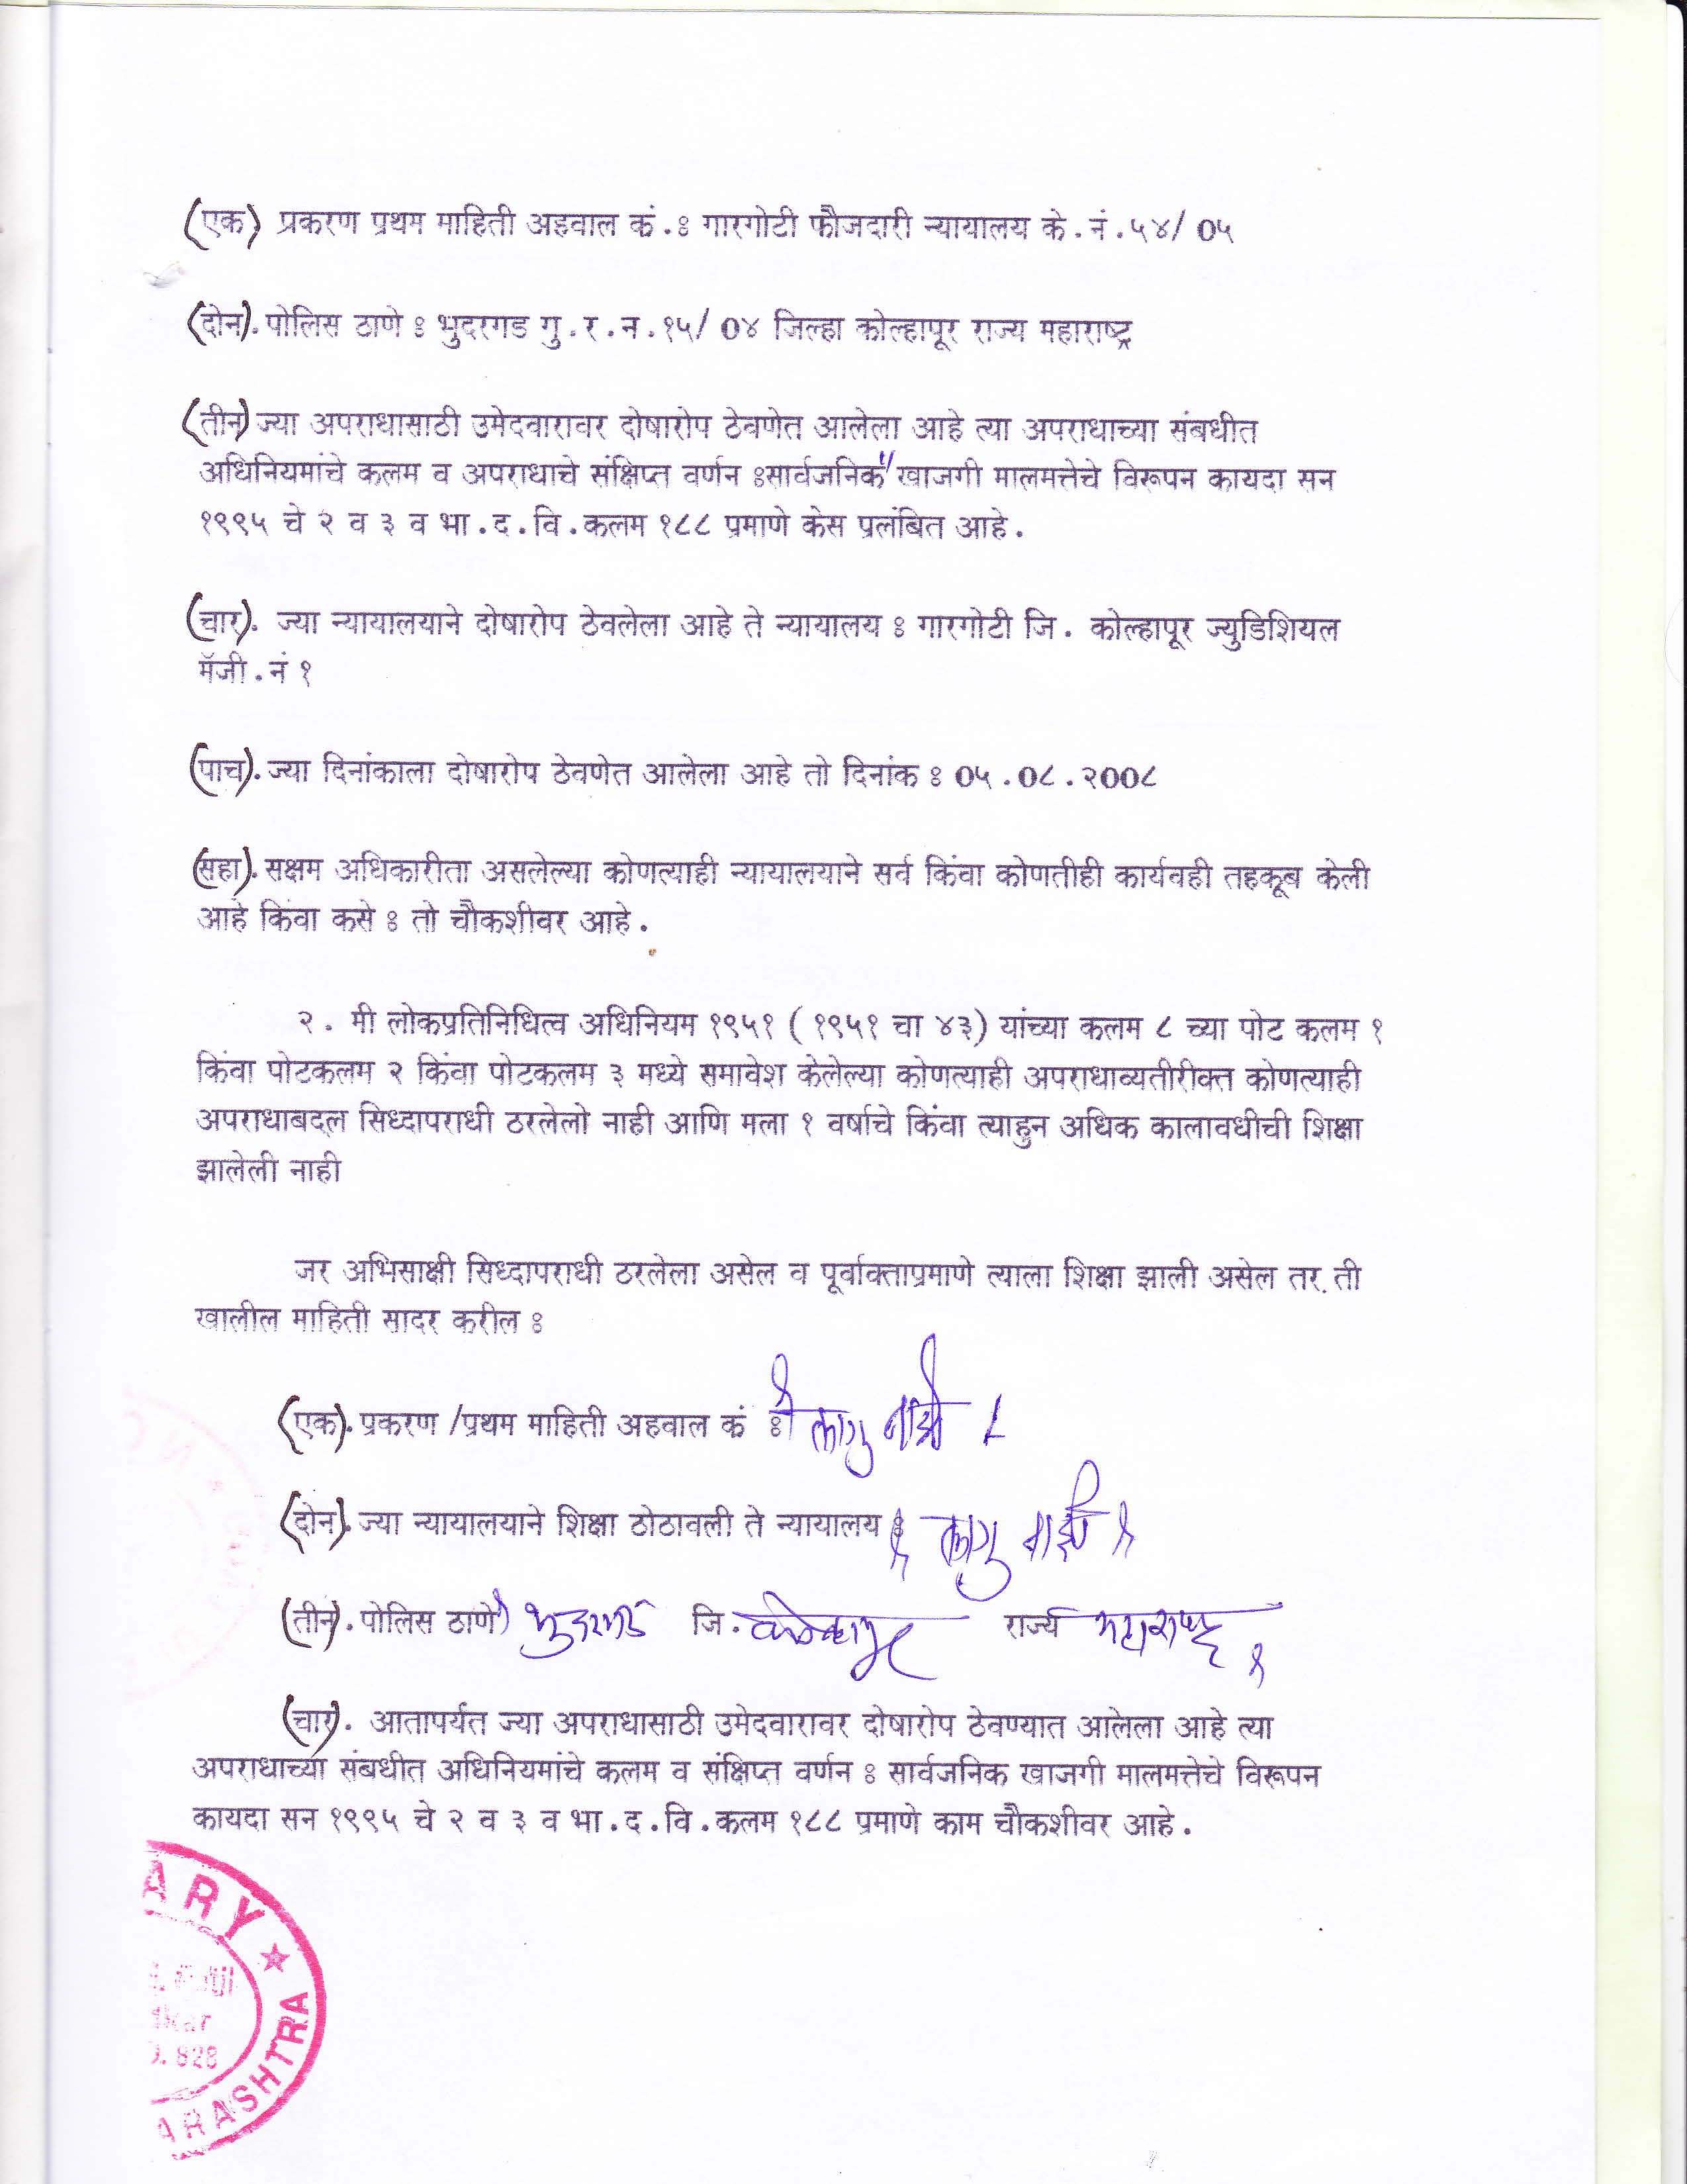 (एक) प्रकरण प्रथम माहिती अहवाल कं.ः गारगोटी फौजदारी न्यायालय के.नं.५४/ ०५
(दोन). पोलिस ठाणे ः भुदरगड गु.र.न.१५/ ०४ जिल्हा कोल्हापूर राज्य महाराष्ट्र
(तीन) ज्या अपराधासाठी उमेदवारावर दोषारोप ठेवणेत आलेला आहे त्या अपराधाच्या संबधीत
अधिनियमांचे कलम व अपराधाचे संक्षिप्त वर्णन ःसार्वजनिक" खाजगी मालमत्तेचे विरूपन कायदा सन
१९९५ चे २ व ३ व भा.द.वि.कलम १८८ प्रमाणे केस प्रलंबित आहे.
(चार). ज्या न्यायालयाने दोषारोप ठेवलेला आहे ते न्यायालय ः गारगोटी जि. कोल्हापूर ज्युडिशियल
मॅजी.नं १
(पाच). ज्या दिनांकाला दोषारोप ठेवणेत आलेला आहे तो दिनांक ः ०५.०८.२००८
(सहा). सक्षम अधिकारीता असलेल्या कोणत्याही न्यायालयाने सर्व किंवा कोणतीही कार्यवही तहकूब केली
आहे किंवा कसे ः तो चौकशीवर आहे.
२. मी लोकप्रतिनिधित्व अधिनियम १९५१ ( १९५१ चा ४३) यांच्या कलम ८ च्या पोट कलम १
किंवा पोटकलम २ किंवा पोटकलम ३ मध्ये समावेश केलेल्या कोणत्याही अपराधाव्यतीरीक्त कोणत्याही
अपराधाबदल सिध्दापराधी ठरलेलो नाही आणि मला १ वर्षाचे किंवा त्याहुन अधिक कालावधीची शिक्षा
झालेली नाही
जर अभिसाक्षी सिध्दापराधी ठरलेला असेल व पूर्वाक्ताप्रमाणे त्याला शिक्षा झाली असेल तर. ती
खालील माहिती सादर करील ः
(एक). प्रकरण /प्रथम माहिती अहवाल कं ः लागु नाही
(दोन). ज्या न्यायालयाने शिक्षा ठोठावली ते न्यायालय ः लागु नाही
(तीन). पोलिस ठाणे भुदरगड जि. कोल्हापूर राज्य महाराष्ट्र
(चार). आतापर्यत ज्या अपराधासाठी उमेदवारावर दोषारोप ठेवण्यात आलेला आहे त्या
अपराधाच्या संबधीत अधिनियमांचे कलम व संक्षिप्त वर्णन ः सार्वजनिक खाजगी मालमत्तेचे विरूपन
कायदा सन १९९५ चे २ व ३ व भा.द.वि.कलम १८८ प्रमाणे काम चौकशीवर आहे.
ARY ★
828
ARASHTRA